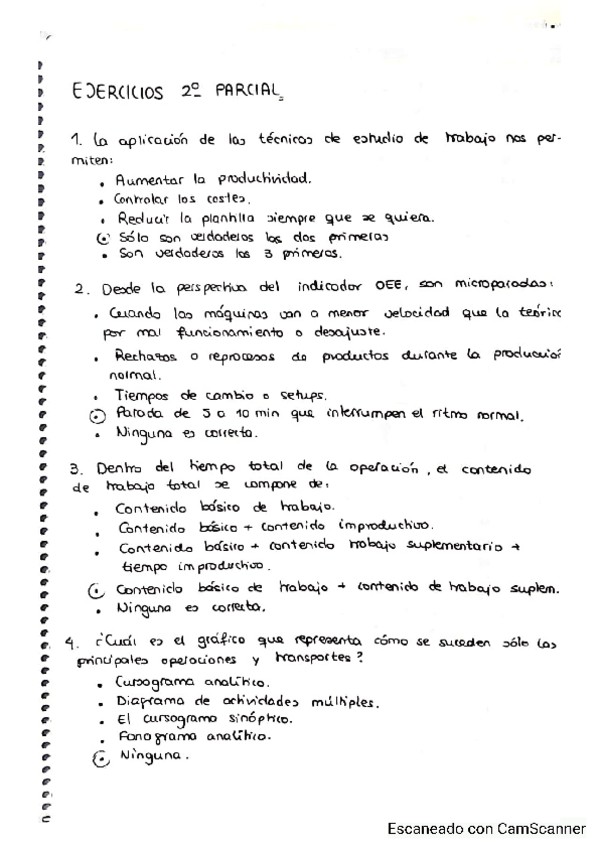 EJERCICIOS 2º PARCIAL.
1. La aplicación de las técnicas de estudio de trabajo nos per-
miten:
• Aumentar la productividad.
• Controlar los costes.
• Reducir la plantilla siempre que se quiera.
• Sólo son verdaderos las dos primeras
• Son verdaderos las 3 primeras.
2. Desde la perspectiva del indicador OEE, son microparadas:
• Cuando las máquinas van a menor velocidad que la teórica
por mal funcionamiento o desajuste.
• Rechazos o reprocesos de productos durante la producción
normal.
• Tiempos de cambio o setups.
• Parada de 5 o 10 min que interrumpen el ritmo normal.
• Ninguna es correcta.
3. Dentro del tiempo total de la operación, el contenido
de trabajo total se compone de:
• Contenido básico de trabajo.
• Contenido básico + contenido improductivo.
• Contenido básico + contenido trabajo suplementario +
tiempo improductivo.
• Contenido básico de trabajo + contenido de trabajo suplem.
• Ninguna es correcta.
4. ¿Cuál es el gráfico que representa cómo se suceden sólo las
principales operaciones y transportes?
• Cursograma analítico.
• Diagrama de actividades múltiples.
• El cursograma sinóptico.
• Fonograma analítico.
• Ninguna.
Escaneado con CamScanner